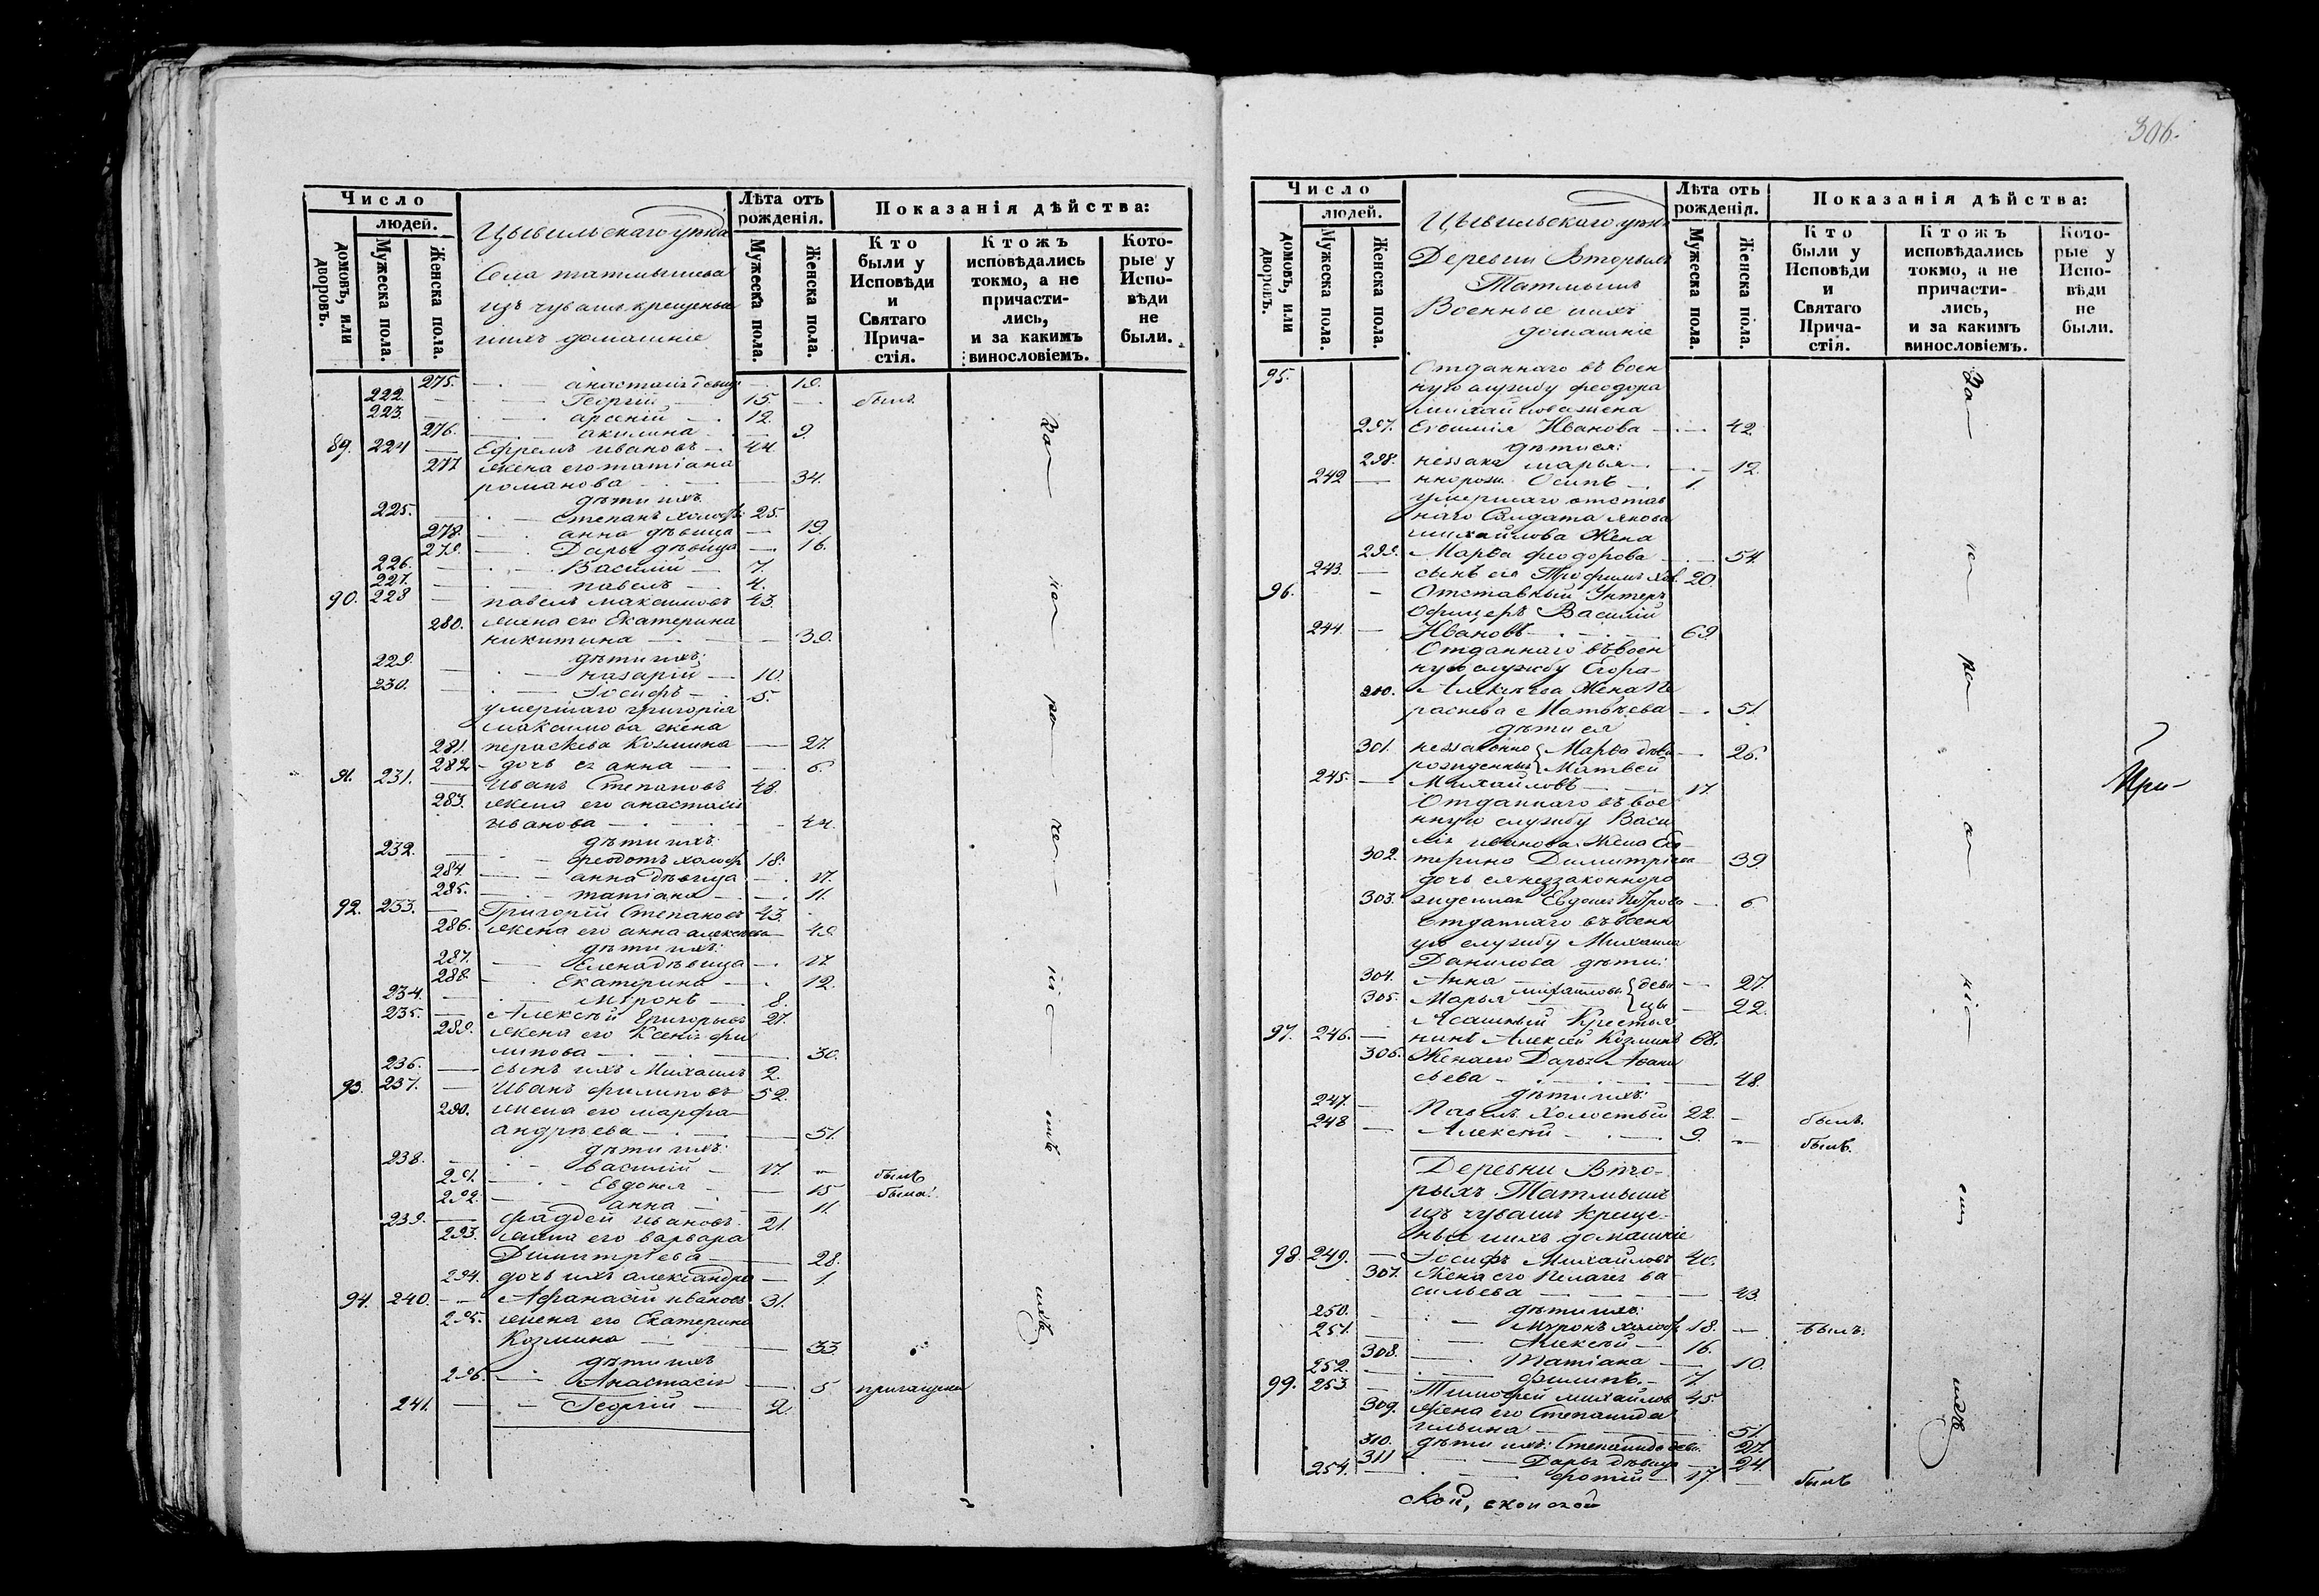 Число
людей.
домовъ, или дворовъ.
Мужеска пола.
Женска пола.
Цывильскаго уѣзда
Села татмышева
изъ чувашъ крещеные
и ихъ домашніе
Лѣта отъ рожденія.
Мужеска пола.
Женска пола.
Показанія дѣйства:
Кто были у Исповѣди и Святаго Причастія.
Ктожъ исповѣдались токмо, а не причастились, и за какимъ винословіемъ.
Которые у Исповѣди не были.
275. анастасія девица 19.
222. Георгій 15. былъ
223. арсеній 12.
276. акилина 9.
89. 224 Ефремъ ивановъ 44
277 жена его татіана
романова 34.
дѣти ихъ
225. Степанъ холост. 25.
278. анна дѣвица 19.
279. Дарья дѣвица 16.
226. Василій 7.
227. павелъ 4.
90. 228 павелъ максимовъ 43.
280. жена его Екатерина
никитина 39.
дѣти ихъ:
229. назарій 10.
230. Іосифъ 5.
умершаго григорія
максимова жена
281. пераскева Козмина 27.
282 дочь ея анна 6.
91. 231. Иванъ Степановъ 48.
283. жена его анастасія
иванова 44.
дѣти ихъ:
232. феодотъ холост. 18.
284. анна дѣвица 17.
285. татіана 11.
92. 233. Григорій Степановъ 43.
286. жена его анна алексѣева 49.
дѣти ихъ:
287. Елена дѣвица 17.
288. Екатерина 12.
234. Миронъ 8.
235. Алексѣй Григорьевъ 27.
289. жена его Ксенія фи
липова 30.
236. сынъ ихъ Михаилъ 2.
93. 237. Иванъ филиповъ 52.
290. жена его марфа
андрѣева 51.
дѣти ихъ:
238. василій 17. былъ
291. Евдокія 15 была.
292. анна 11.
239. фаддей ивановъ 21.
293. жена его варвара
Димитріева 28.
294. дочь ихъ александра 1.
94. 240. Афанасій ивановъ 31.
295. жена его Екатерина
Козмина 33.
дѣти ихъ
296. Анастасія 5 причащена
241. Георгій 2.
306.
Число
людей.
домовъ, или дворовъ.
Мужеска пола.
Женска пола.
Цывильскаго уѣзда
Деревни Вторыхъ
Татмышъ
Военные и ихъ
домашніе
Лѣта отъ рожденія.
Мужеска пола.
Женска пола.
Показанія дѣйства:
Кто были у Исповѣди и Святаго Причастія.
Ктожъ исповѣдались токмо, а не причастились, и за какимъ винословіемъ.
Которые у Исповѣди не были.
95. Отданнаго въ воен
ную службу феодора
михайлова жена
297. Евфимія Иванова 42.
дѣти ея:
298. марья 12.
242 Осипъ 1.
умершаго отстав
наго Салдата якова
михайлова Жена
299. Марѳа феодорова 54.
243. сынъ ея Трофимъ хол. 20.
96. Отставный Унтеръ
Офицеръ Василій
244. Ивановъ 69.
Отданнаго въ воен
ную службу Егора
300. Алексѣева Жена Пе
раскева Матвѣева 51.
дѣти ея
301. незаконно Марѳа дѣви 26.
рожденныя Матвей
245. Михайловъ 17.
Отданнаго въ вое
нную службу Васи
лія иванова Жена Ека
302. терина Димитріева 39.
дочь ея незаконноро
303. жденная Евдокія Петрова 6
Отданнаго въ военн
ую службу Михаила
Данилова дѣти:
304. Анна михайловы деви 27.
305. Марья цы 22.
Ясашный Крестья
97. 246. нинъ Алексей Козминъ 68.
306. Жена его Дарья Афана
сьева 48.
дѣти ихъ:
247. Павелъ Холостый 22. былъ.
248 Алексѣй 9. былъ.
Деревни Вто-
рыхъ Татмышъ
изъ чувашъ креще-
ные и ихъ домашніе
98. 249. Іосифъ Михайловъ 40.
307. Жена его Пелагея ва
сильева 43.
дѣти ихъ:
250. Миронъ холост. 18. былъ.
251. Алексѣй 16.
308. Татіана 10.
252. филипъ 7.
99. 253 Тимофей михайлов 45.
309. Жена его Степанида
ильина 51.
310. дѣти ихъ: Степанида деви. 27.
311 Дарья дѣвица 24.
254. фотій 17. былъ
При-